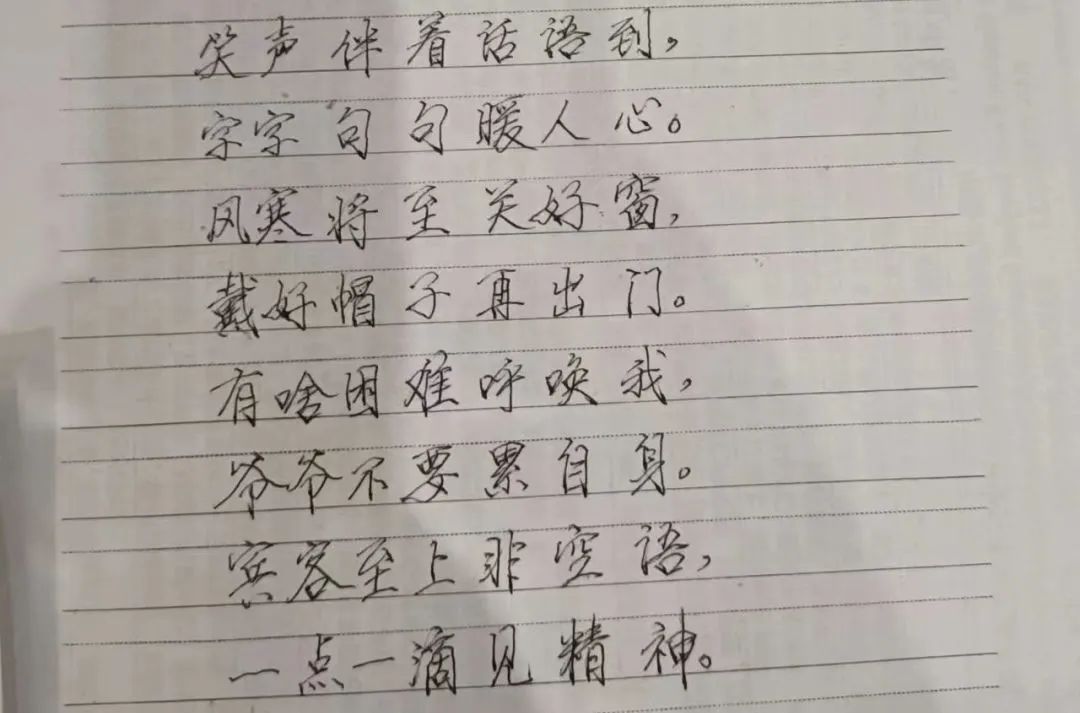 笑声伴着话语到,
字字句句暖人心。
风寒将至关好窗,
戴好帽子再出门。
有啥困难呼唤我,
爷爷不要累自身。
宾客至上非空语,
一点一滴见精神。